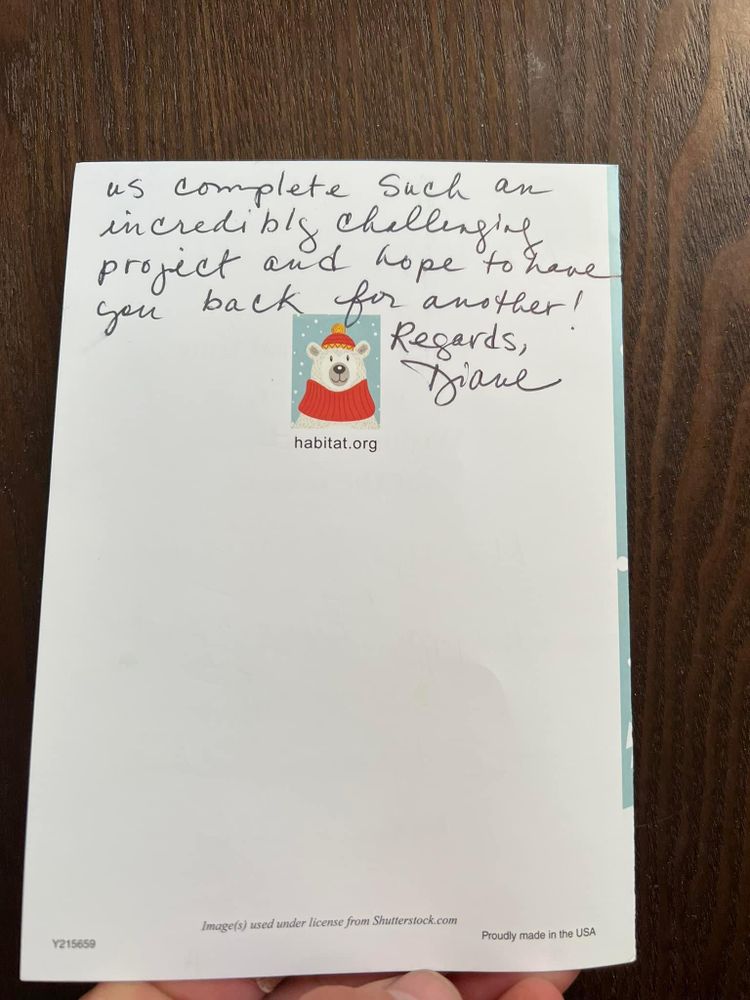 us complete such an
incredibly challenging
project and hope to have
you back for another!
Regards,
Diane
habitat.org
Image(s) used under license from Shutterstock.com
Y215659
Proudly made in the USA